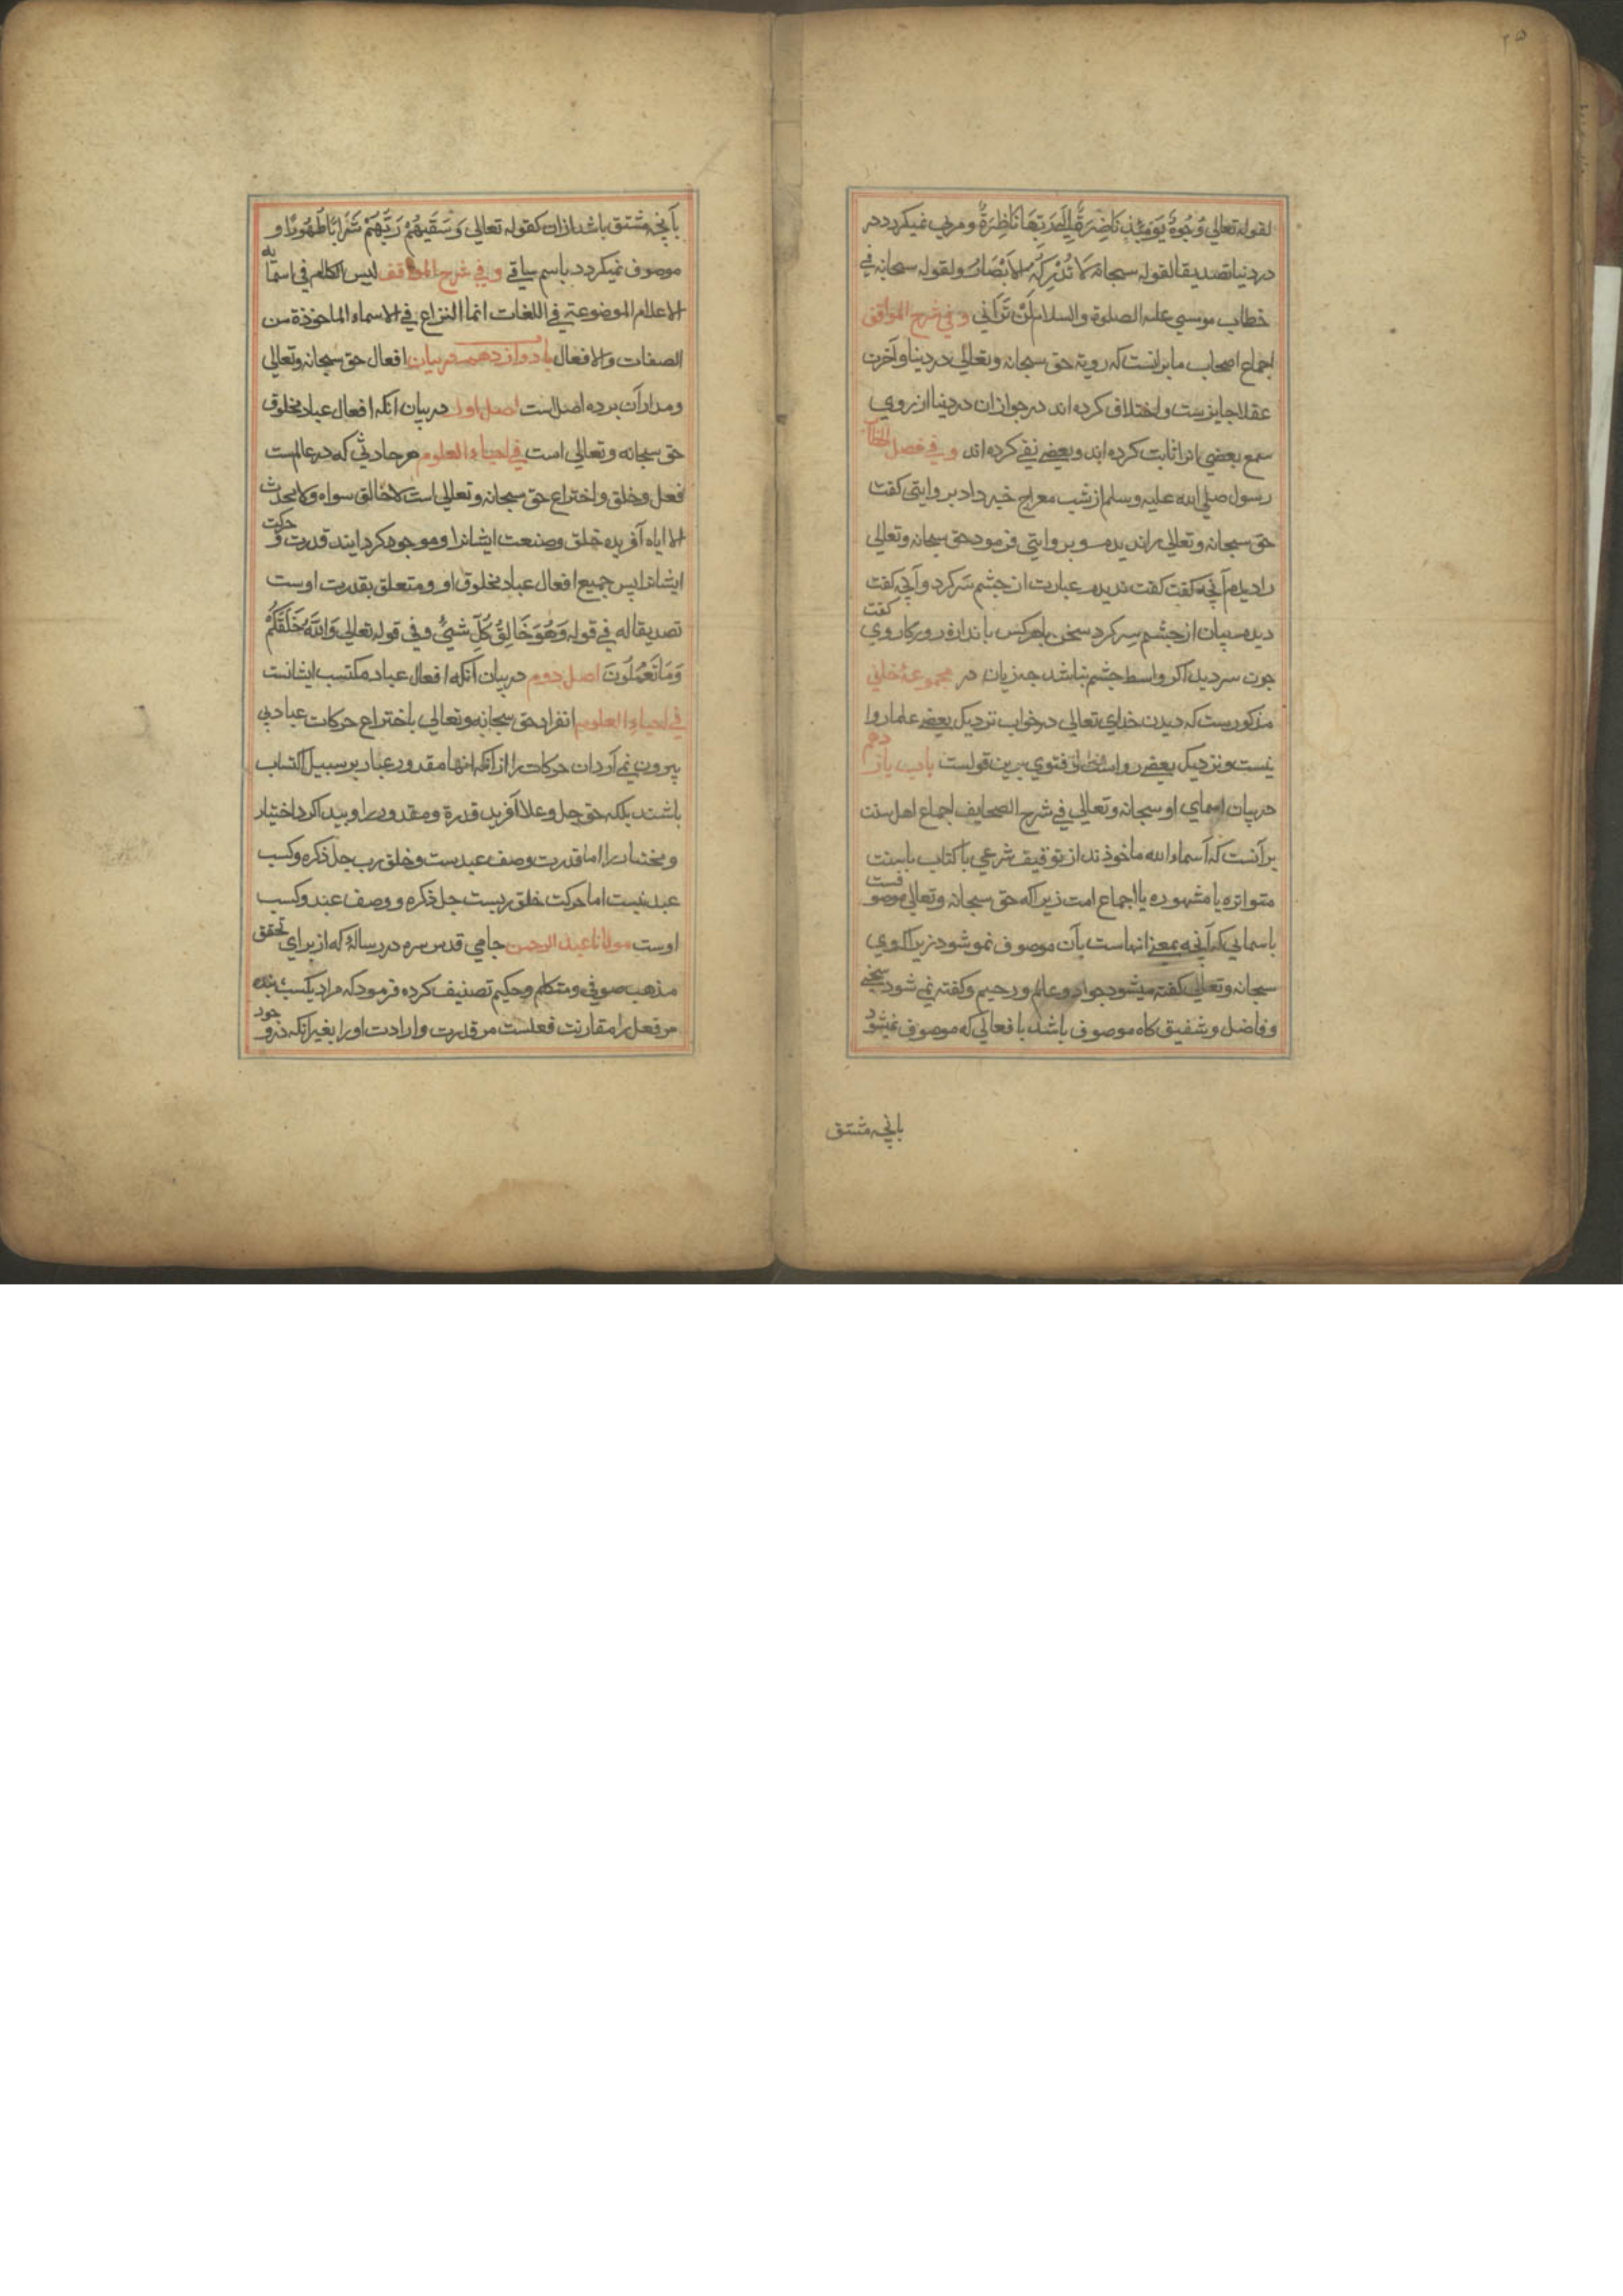 ۲۵
لقوله تعالی وُجُوهٌ يَوْمَئِذٍ نَاضِرَةٌ إِلَى رَبِّهَا نَاظِرَةٌ و مرئی نمیکردد در
در دنیا تصدیقا لقوله سبحانه لَا تُدْرِكُهُ الْأَبْصَارُ ولقوله سبحانه فی
خطاب موسی علیه الصلوة والسلام لَنْ تَرَانِي و فی شرح المواقف
اجماع اصحاب ما برانست که رویة حق سبحانه وتعالی در دنیا و آخرت
عقلا جایزست و اختلاف کرده اند در جواز ان در دنیا از روی
سمع بعضی انرا اثابت کرده اند و بعضی نفی کرده اند و فی فصل الخطاب
رسول صلی الله علیه وسلم از شب معراج خبر داد بروایتی کفت
حق سبحانه وتعالی را ندیدم و بروایتی فرمود حق سبحانه وتعالی
را دیدم آنچه کفت کفت ندیدم عبارت از چشم سر کرد و آنچه کفت کفت
دیدم بیان از چشم سِر کرد سخن باهرکس باندازه روزکار وی
چون سر دید اکر واسط چشم نباشد چه زیان در مجموعهٔ خانی
مذکورست که دیدن خدای تعالی در خواب نزدیک بعضی علما روا
نیست و نزدیک بعضی رواست فتوی برین قولست باب یازدهم
در بیان اسمای او سبحانه وتعالی فی شرح الصحایف اجماع اهل سنت
بر آنست که اسماء الله ماخوذند از توقیف شرعی با کتاب یا سنت
متواتره یا مشهوده یا اجماع امت زیراکه حق سبحانه وتعالی موصوفست
باسمائی که آنچه بمعز انهاست بآن موصوف نموشود زیراکه وی
سبحانه وتعالی کفته میشود جواد و عالم و رحیم و کفته نمی شود سخی
و فاضل و شفیق کاه موصوف باشد بافعالی که موصوف نمیشود
بانچه مشتق
بآنچه مشتق باشد ازان کقوله تعالی وَسَقَيهُمْ رَبُّهُمْ شَرَابًا طَهُورًا و
موصوف نمیکردد باسم ساقی و فی شرح المواقف لیس الکلام فی اسمائه
الاعلام الموضوعة فی اللغات انما النزاع فی الاسماء الماخوذة من
الصفات والافعال باب دوازدهم در بیان افعال حق سبحانه وتعالی
و مدار آن بر ده اصل است اصل اول در بیان انکه افعال عباد مخلوق
حق سبحانه وتعالی است فی احیاء العلوم هر حادثی که در عالمست
فعل و خلق و اختراع حق سبحانه وتعالی است لا خالق سواه ولا محدث
الا ایاه آفریده خلق و صنعت ایشانرا و موجود کردایند قدرت و حرکت
ایشانرا پس جمیع افعال عباد مخلوق او و متعلق بقدرت اوست
تصدیقا له فی قوله وَهُوَ خَالِقُ كُلِّ شَيْءٍ و فی قوله تعالی وَاللَّهُ خَلَقَكُمْ
وَمَا تَعْمَلُونَ اصل دوم در بیان آنکه افعال عباد مکتسب ایشانست
فی احیاء العلوم انفراد حق سبحانه وتعالی باختراع حرکات عباد بی
بیرون نمی آرد ان حرکات را از آنکه انها مقدور عباد بر سبیل اکتساب
باشند بلکه حق جل وعلا آفرید قدرة و مقدور را و پیدا کرد اختیار
و مختار را اما قدرت وصف عبدست و خلق رب جل ذکره و کسب
عبد نیست اما حرکت خلق ربست جل ذکره و وصف عبد و کسب
اوست مولانا عبد الرحمن جامی قدس سره در رسالهٔ که از برای تحقق
مذهب صوفی و متکلم و حکیم تصنیف کرده فرمود که مراد بکسب بنده
مر فعل را مقارنت فعلست مر قدرت و ارادت او را بغیر انکه در وجود